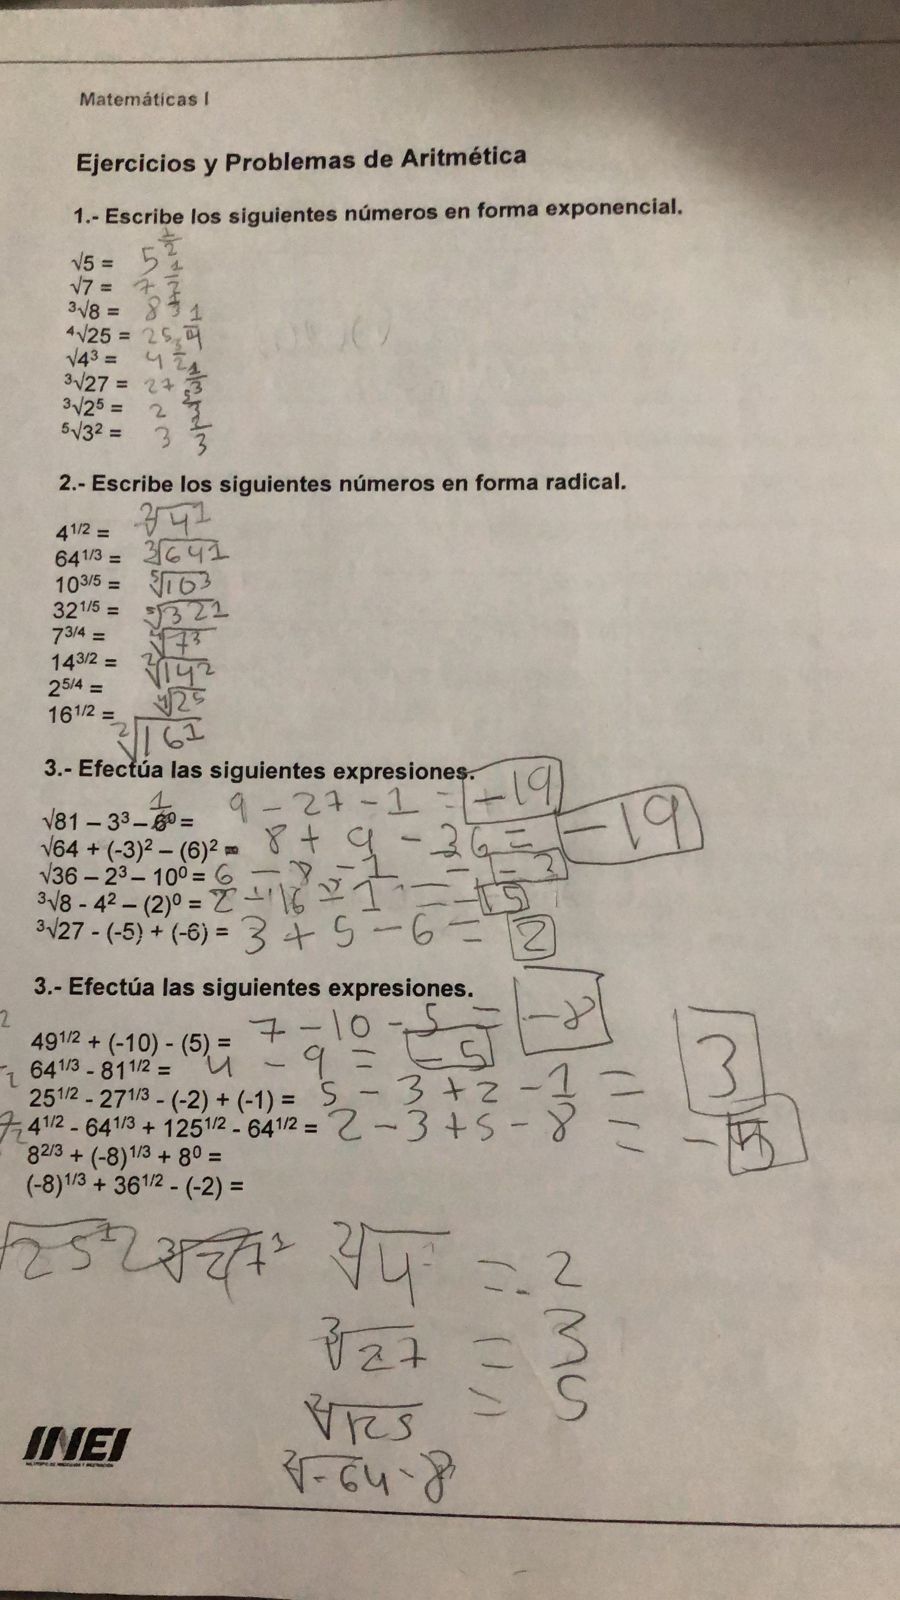 Matemáticas I
Ejercicios y Problemas de Aritmética
1.- Escribe los siguientes números en forma exponencial.
√5 = 5^1/2
√7 = 7^1/2
³√8 = 8^1/3
⁴√25 = 25^1/4
√4³ = 4^3/2
³√27 = 27^1/3
³√2⁵ = 2^5/3
⁵√3² = 3^2/3
2.- Escribe los siguientes números en forma radical.
4^1/2 = ²√4¹
64^1/3 = ³√64¹
10^3/5 = ⁵√10³
32^1/5 = ⁵√32¹
7^3/4 = ⁴√7³
14^3/2 = ²√14²
2^5/4 = ⁴√2⁵
16^1/2 = ²√16¹
3.- Efectúa las siguientes expresiones.
√81 – 3³ – 6⁰ = 9 - 27 - 1 = -19
√64 + (-3)² – (6)² = 8 + 9 - 36 = -19
√36 – 2³ – 10⁰ = 6 - 8 - 1 = -3
³√8 - 4² – (2)⁰ = 2 - 16 - 1 = -15
³√27 - (-5) + (-6) = 3 + 5 - 6 = 2
3.- Efectúa las siguientes expresiones.
49^1/2 + (-10) - (5) = 7 - 10 - 5 = -8
64^1/3 - 81^1/2 = 4 - 9 = -5
25^1/2 - 27^1/3 - (-2) + (-1) = 5 - 3 + 2 - 1 = 3
4^1/2 - 64^1/3 + 125^1/2 - 64^1/2 = 2 - 3 + 5 - 8 =
8^2/3 + (-8)^1/3 + 8⁰ =
(-8)^1/3 + 36^1/2 - (-2) =
√25¹ ³√27¹ ²√4 = 2
³√27 = 3
²√125 = 5
²√-64 - 8
INEI